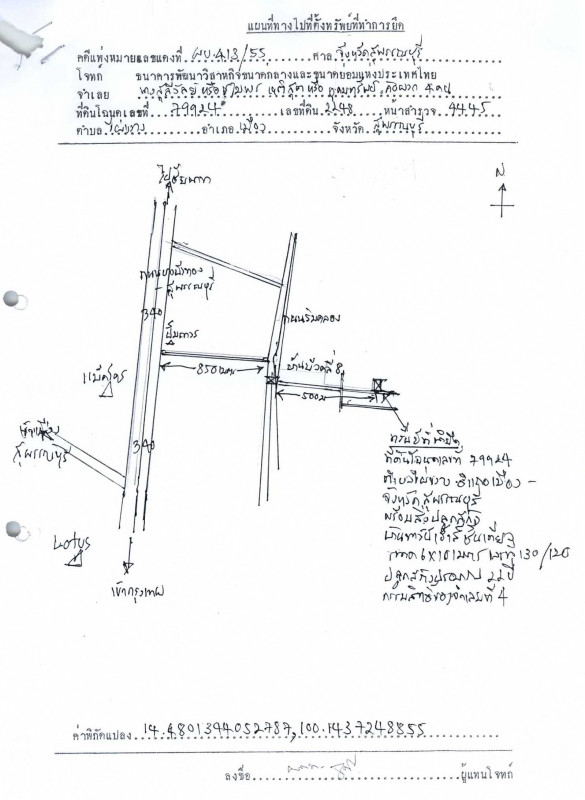 แผนที่ทางไปที่ตั้งทรัพย์ที่ทำการยึด
คดีแพ่งหมายเลขแดงที่ ผบ.413/55 ศาล จังหวัดสุพรรณบุรี
โจทก์ ธนาคารพัฒนาวิสาหกิจขนาดกลางและขนาดย่อมแห่งประเทศไทย
จำเลย หรือ
ที่ดินโฉนดเลขที่ 79924 เลขที่ดิน 2248 หน้าสำรวจ 4445
ตำบล ไผ่ขวาง อำเภอ เมือง จังหวัด สุพรรณบุรี
N
ไปชัยนาท
ถนนบางบัวทอง
- สุพรรณบุรี
340
ถนนริมคลอง
850 เมตร
500 ม
แม็คโคร
340
เข้าเมือง
สุพรรณบุรี
Lotus
เข้ากรุงเทพ
ทรัพย์ที่ยึด
ที่ดินโฉนดเลขที่ 79924
ตำบลไผ่ขวาง อำเภอเมือง -
จังหวัดสุพรรณบุรี
พร้อมสิ่งปลูกสร้าง
ชั้นเดียว
ขนาด 6x10 เมตร เลขที่ 130/120
ปลูกสร้างประมาณ 22 ปี
กรรมสิทธิ์ของจำเลยที่ 4
ค่าพิกัดแปลง 14.4801394052787,100.1437248855
ลงชื่อ ผู้แทนโจทก์